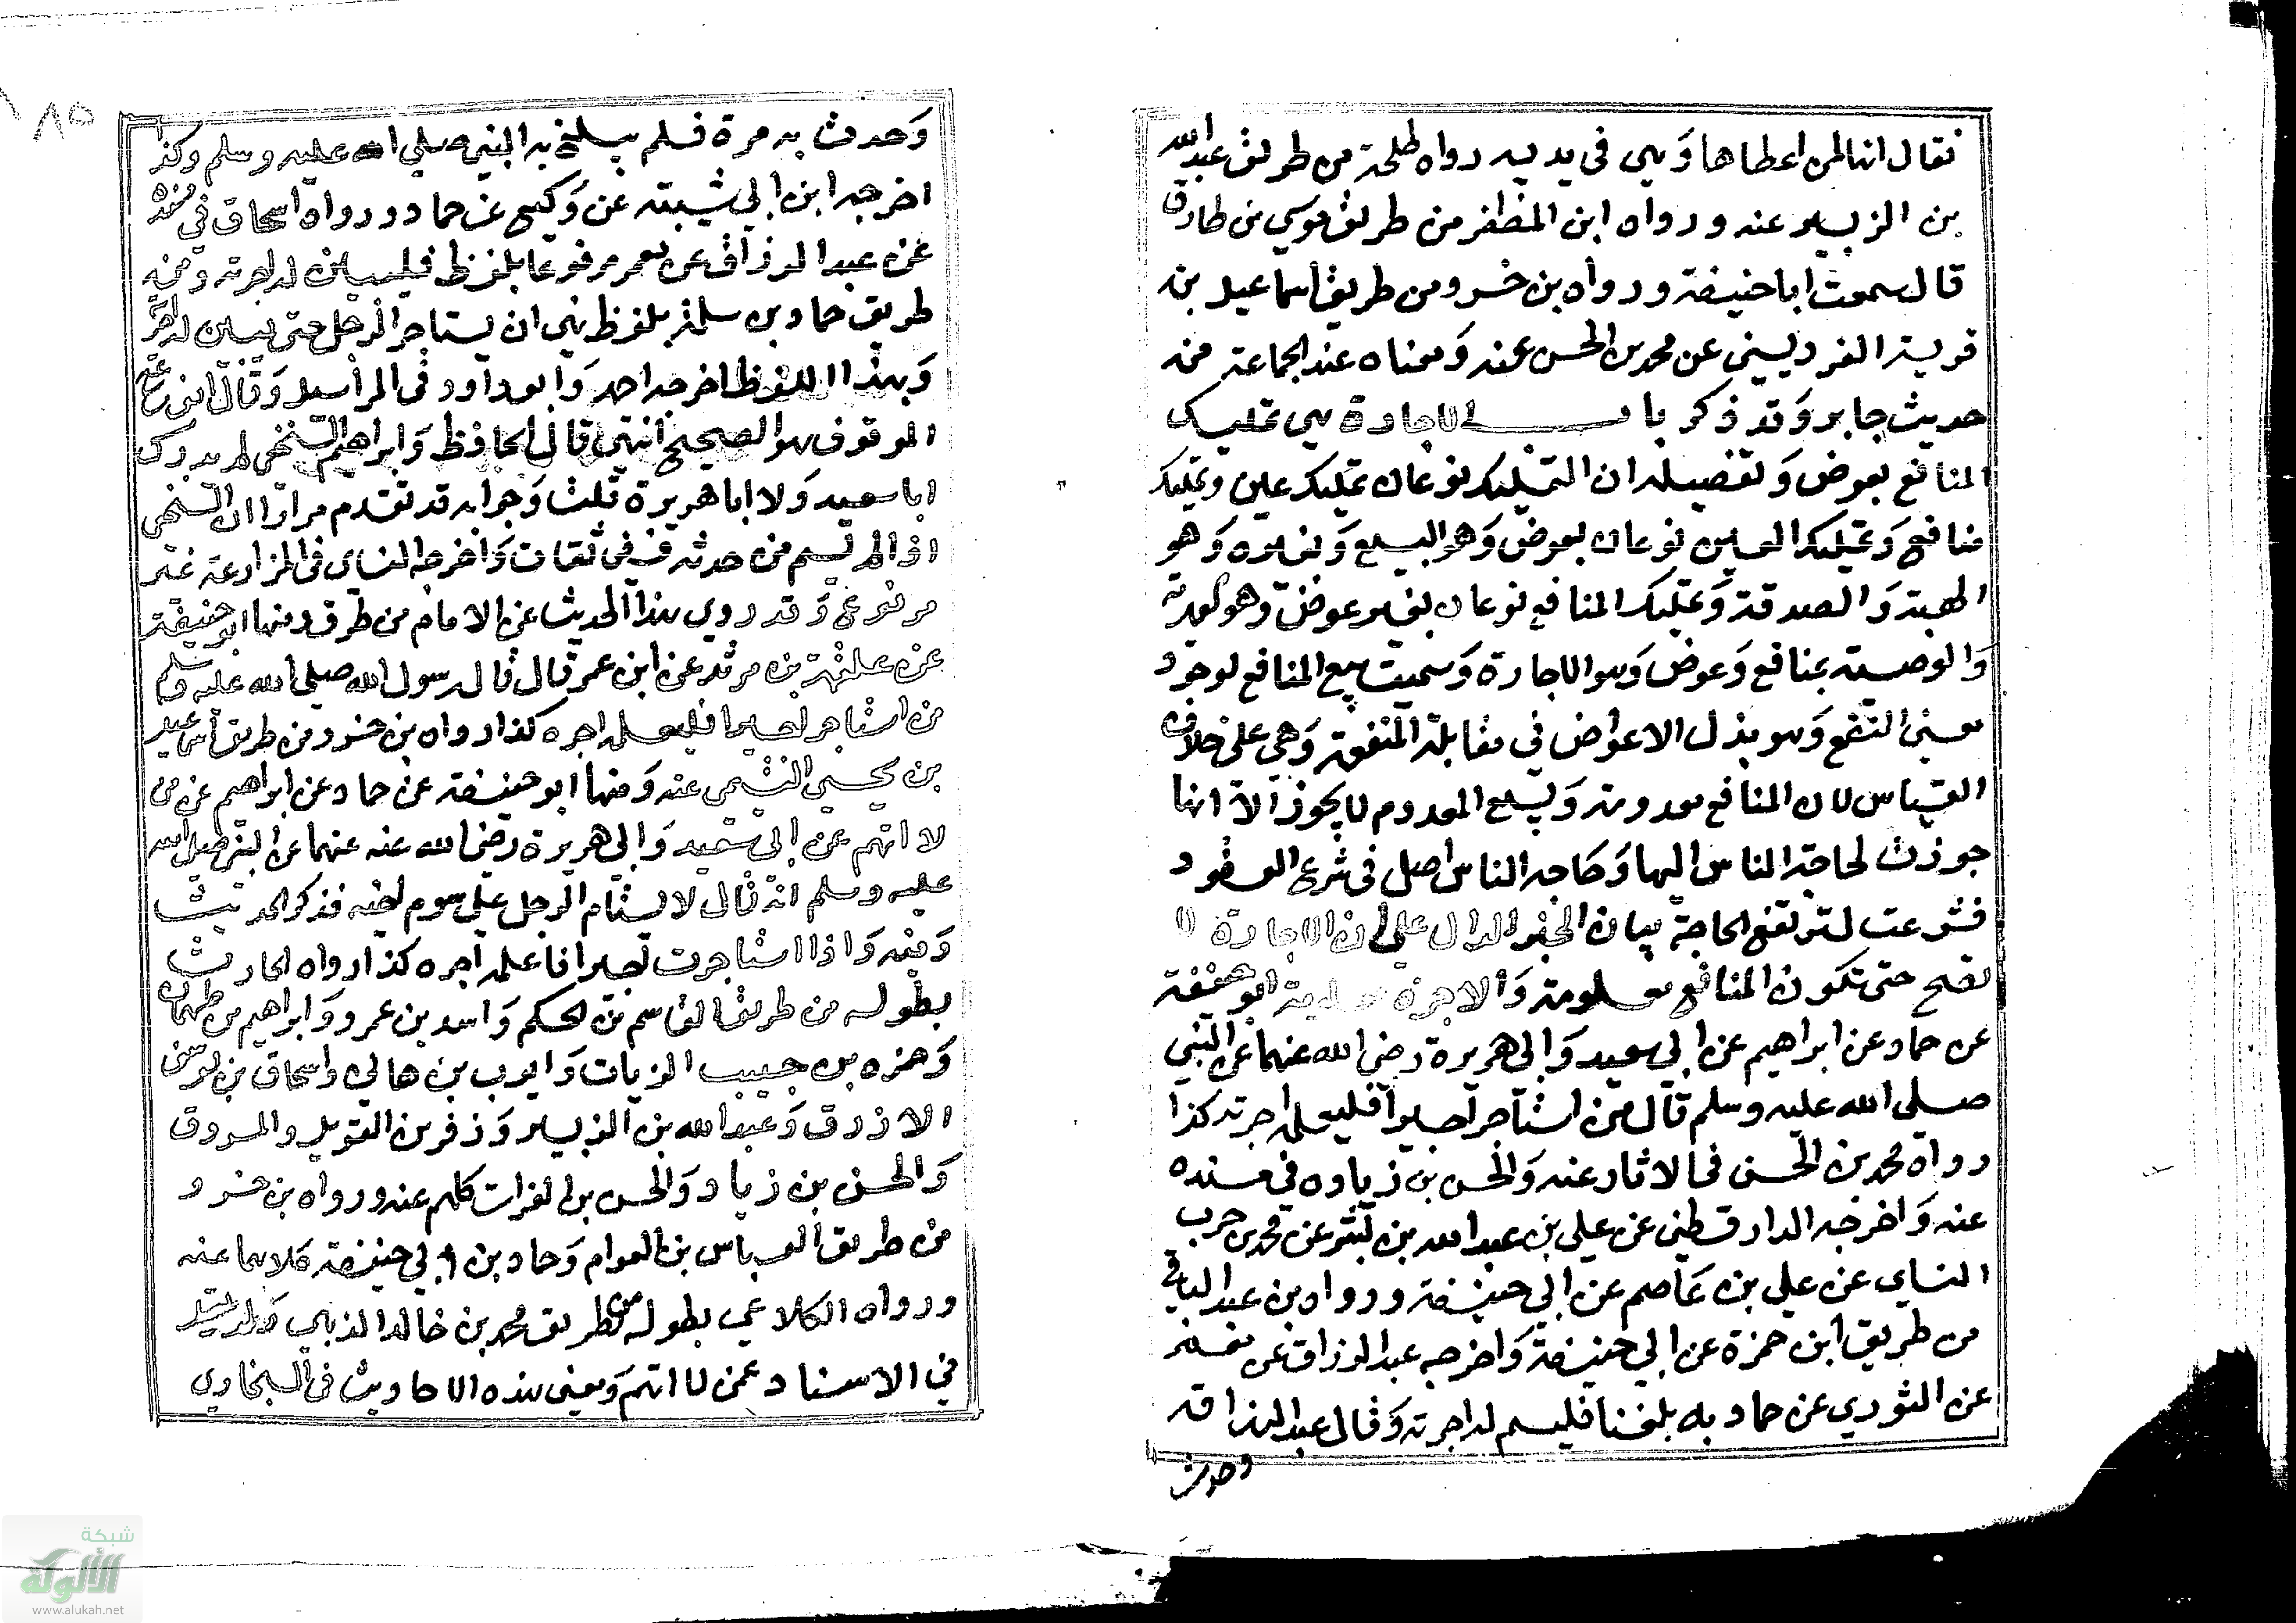 فقال انها لمن اعطاها وهي في يديه رواه طلحة من طريق عبد الله
بن الزبير عنه ورواه ابن المظفر من طريق موسي بن طارق
قال سمعت ابا حنيفة ورواه بن خسرو من طريق اسماعيل بن
عن محمد بن الحسن عنه ومعناه عند الجماعة من
حديث جابر وقد ذكر باب الاجارة هي تمليك
المنافع بعوض وتفصيله ان التمليك نوعان تمليك عين وتمليك
منافع وتمليك العين نوعان بعوض وهو البيع وبغيره وهو
الهبة والصدقة وتمليك المنافع نوعان بغير عوض وهو
والوصية بمنافع وعوض وهو الاجارة وسميت بيع المنافع لوجود
معني النفع وهو بذل الاعواض في مقابلة المنفعة وهي علي خلاف
القياس لان المنافع معدومة وبيع المعدوم لا يجوز الا انها
جوزت لحاجة الناس اليها وحاجة الناس اصل في شرع العقود
فشرعت لترتفع الحاجة بيان الخبر الدال علي ان الاجارة لا
تصح حتى تكون المنافع معلومة والاجرة معلومة ابو حنيفة
عن حماد عن ابراهيم عن ابي سعيد وابي هريرة رضي الله عنهما عن النبي
صلى الله عليه وسلم قال من استاجر اجيرا فليعلمه اجرته كذا
رواه محمد بن الحسن في الاثار عنه والحسن بن زياد في مسنده
عنه واخرجه الدارقطني عن علي بن عبد الله بن بشر عن محمد بن حرب
النساي عن علي بن عاصم عن ابي حنيفة ورواه بن عبد الباقي
من طريق ابن حمزة عن ابي حنيفة واخرجه عبد الرزاق عن معمر
عن الثوري عن حماد به بلفظ فليسم له اجرته وقال عبد الرزاق
وحدث
٨٥
وحدث به مرة فلم يبلغ به النبي صلي الله عليه وسلم وكذا
اخرجه ابن ابي شيبة عن وكيع عن حماد ورواه اسحاق في مسنده
عن عبد الرزاق عن معمر مرفوعا بلفظ فليبين له اجرته ومن
طريق حماد بن سلمة بلفظ نهي ان يستاجر الرجل حتى يبين له اجره
وبهذا اللفظ اخرجه احمد وابو داود في المراسيل وقال ابو زرعة
الموقوف هو الصحيح انتهي قال الحافظ وابراهيم النخعي لم يدرك
ابا سعيد ولا ابا هريرة قلت وجوابه قد تقدم مرارا ان النخعي
اذا لم يسم من حدثه فهي ثقات واخرجه النساي في المزارعة غير
مرفوع وقد روي هذا الحديث عن الامام من طرق منها ابو حنيفة
عن علقمة بن مرثد عن ابن عمر قال قال رسول الله صلي الله عليه وسلم
من استاجر اجيرا فليعلمه اجره كذا رواه بن خسرو من طريق اسماعيل
بن يحيي التيمي عنه ومنها ابو حنيفة عن حماد عن ابراهيم عن من
لا اتهم عن ابي سعيد وابي هريرة رضي الله عنه عنهما عن النبي صلي الله
عليه وسلم انه قال لا يستام الرجل علي سوم اخيه فذكر الحديث
وفيه واذا استاجرت اجيرا فاعلمه اجره كذا رواه الحارثي
بطوله من طريق القاسم بن الحكم واسد بن عمرو وابراهيم بن طهمان
وحمزه بن حبيب الزيات وايوب بن هاني واسحاق بن يوسف
الازرق وعبد الله بن الزبير وزفر بن الهذيل والمسروق
والحسن بن زياد والحسن بن الفرات كلهم عنه ورواه بن خسرو
من طريق العباس بن العوام وحماد بن ابي حنيفة كلاهما عنه
ورواه الكلاعي بطوله من طريق محمد بن خالد الذهبي
في الاسناد عمن لا اتهم ومعني هذه الاحاديث في البخاري
شبكة
الألوكة
www.alukah.net